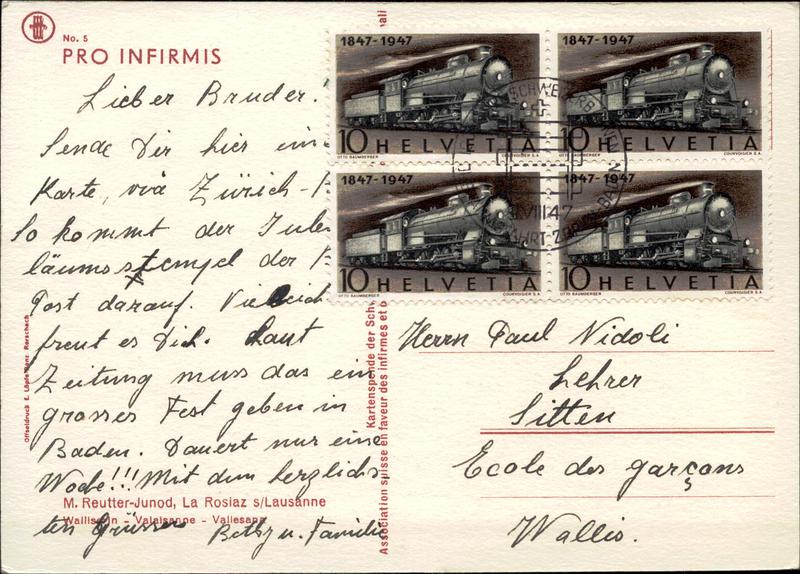 No. 5
PRO INFIRMIS
Lieber Bruder.
Sende Dir hier ein
Karte, via Zürich-
So kommt der Jubi
läumsstempel der
Post darauf. Vielleich
freut es Dich. Laut
Zeitung muss das ein
grosses Fest geben in
Baden. Dauert nur eine
Woche!!! Mit dem herzlichs
ten Grüssen Bethy u. Familie
M. Reutter-Junod, La Rosiaz s/Lausanne
Walliserin - Valaisanne - Vallesana
Offsetdruck E. Löpfe-Benz Rorschach
Kartenspende der Sch
Association suisse en faveur des infirmes et
1847-1947
10 HELVETIA
OTTO BAUMBERGER COURVOISIER S.A.
1847-1947
10 HELVETIA
OTTO BAUMBERGER COURVOISIER S.A.
1847-1947
10 HELVETIA
OTTO BAUMBERGER COURVOISIER S.A.
1847-1947
10 HELVETIA
OTTO BAUMBERGER COURVOISIER S.A.
VIII 47
Herrn Paul Nidoli
Lehrer
Sitten
Ecole des garçons
Wallis.